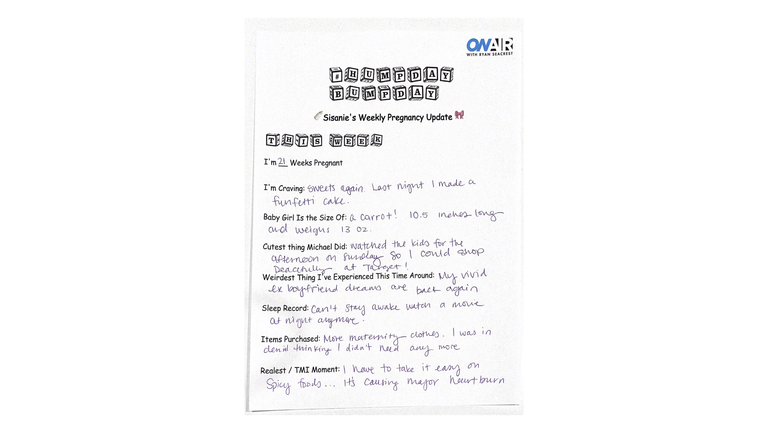 ON AIR
WITH RYAN SEACREST
#HUMPDAY
BUMPDAY
Sisanie's Weekly Pregnancy Update
THIS WEEK
I'm 21 Weeks Pregnant
I'm Craving: sweets again. Last night I made a
funfetti cake.
Baby Girl Is the Size Of: a carrot! 10.5 inches long
and weighs 13 oz.
Cutest thing Michael Did: watched the kids for the
afternoon on Sunday so I could shop
peacefully at Target!
Weirdest Thing I've Experienced This Time Around: My vivid
ex boyfriend dreams are back again
Sleep Record: Can't stay awake watch a movie
at night anymore.
Items Purchased: More maternity clothes. I was in
denial thinking I didn't need any more
Realest / TMI Moment: I have to take it easy on
Spicy foods... It's causing major heartburn